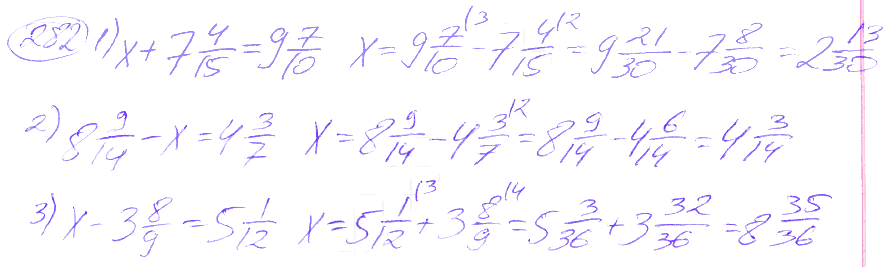 282 1) x + 7 4/15 = 9 7/10 x = 9 7/10 ⁽³ - 7 4/15 ⁽² = 9 21/30 - 7 8/30 = 2 13/30
2) 8 9/14 - x = 4 3/7 x = 8 9/14 - 4 3/7 ⁽² = 8 9/14 - 4 6/14 = 4 3/14
3) x - 3 8/9 = 5 1/12 x = 5 1/12 ⁽³ + 3 8/9 ⁽⁴ = 5 3/36 + 3 32/36 = 8 35/36